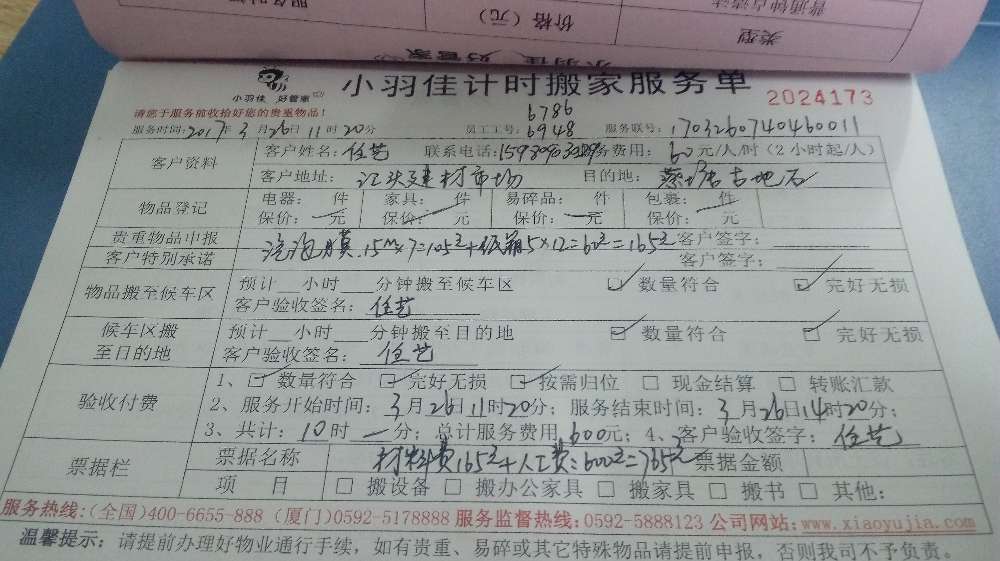 服务时间
价格（元）
普通钟点清洁
类型
小羽佳 好管家
小羽佳 好管家
小羽佳计时搬家服务单
2024173
请您于服务前收拾好您的贵重物品！
6786
服务时间:2017年3月26日11时20分 员工工号: 6948 服务联号: 1703260740460011
客户资料
客户姓名: 任艺 联系电话: 服务费用: 60元/人/时（2小时起/人）
客户地址: 江头建材市场 目的地:
物品登记
电器: 件 家具: 一件 易碎品: 件 包裹: 一件
保价: 一元 保价: 一元 保价: 一元 保价: 元
贵重物品申报 汽泡膜.15M×7=105元+纸箱5×12=60元=165元 客户签字:
客户特别承诺 客户签字:
物品搬至候车区
预计__小时__分钟搬至候车区 ☑ 数量符合 ☑ 完好无损
客户验收签名: 任艺
候车区搬至目的地
预计__小时__分钟搬至目的地 ☑ 数量符合 ☑ 完好无损
客户验收签名: 任艺
验收付费
1、☑ 数量符合 ☑ 完好无损 ☑ 按需归位 □ 现金结算 □ 转账汇款
2、服务开始时间: 3月26日11时20分; 服务结束时间: 3月26日14时20分;
3、共计: 10时一分; 总计服务费用600元; 4、客户验收签字: 任艺
票据栏
票据名称 材料费165元+人工费=600元=765元 票据金额
项 目 □ 搬设备 □ 搬办公家具 □ 搬家具 □ 搬书 □ 其他:
服务热线:(全国)400-6655-888 (厦门)0592-5178888 服务监督热线:0592-5888123 公司网站:www.xiaoyujia.com
温馨提示: 请提前办理好物业通行手续，如有贵重、易碎或其它特殊物品请提前申报，否则我司不予负责。